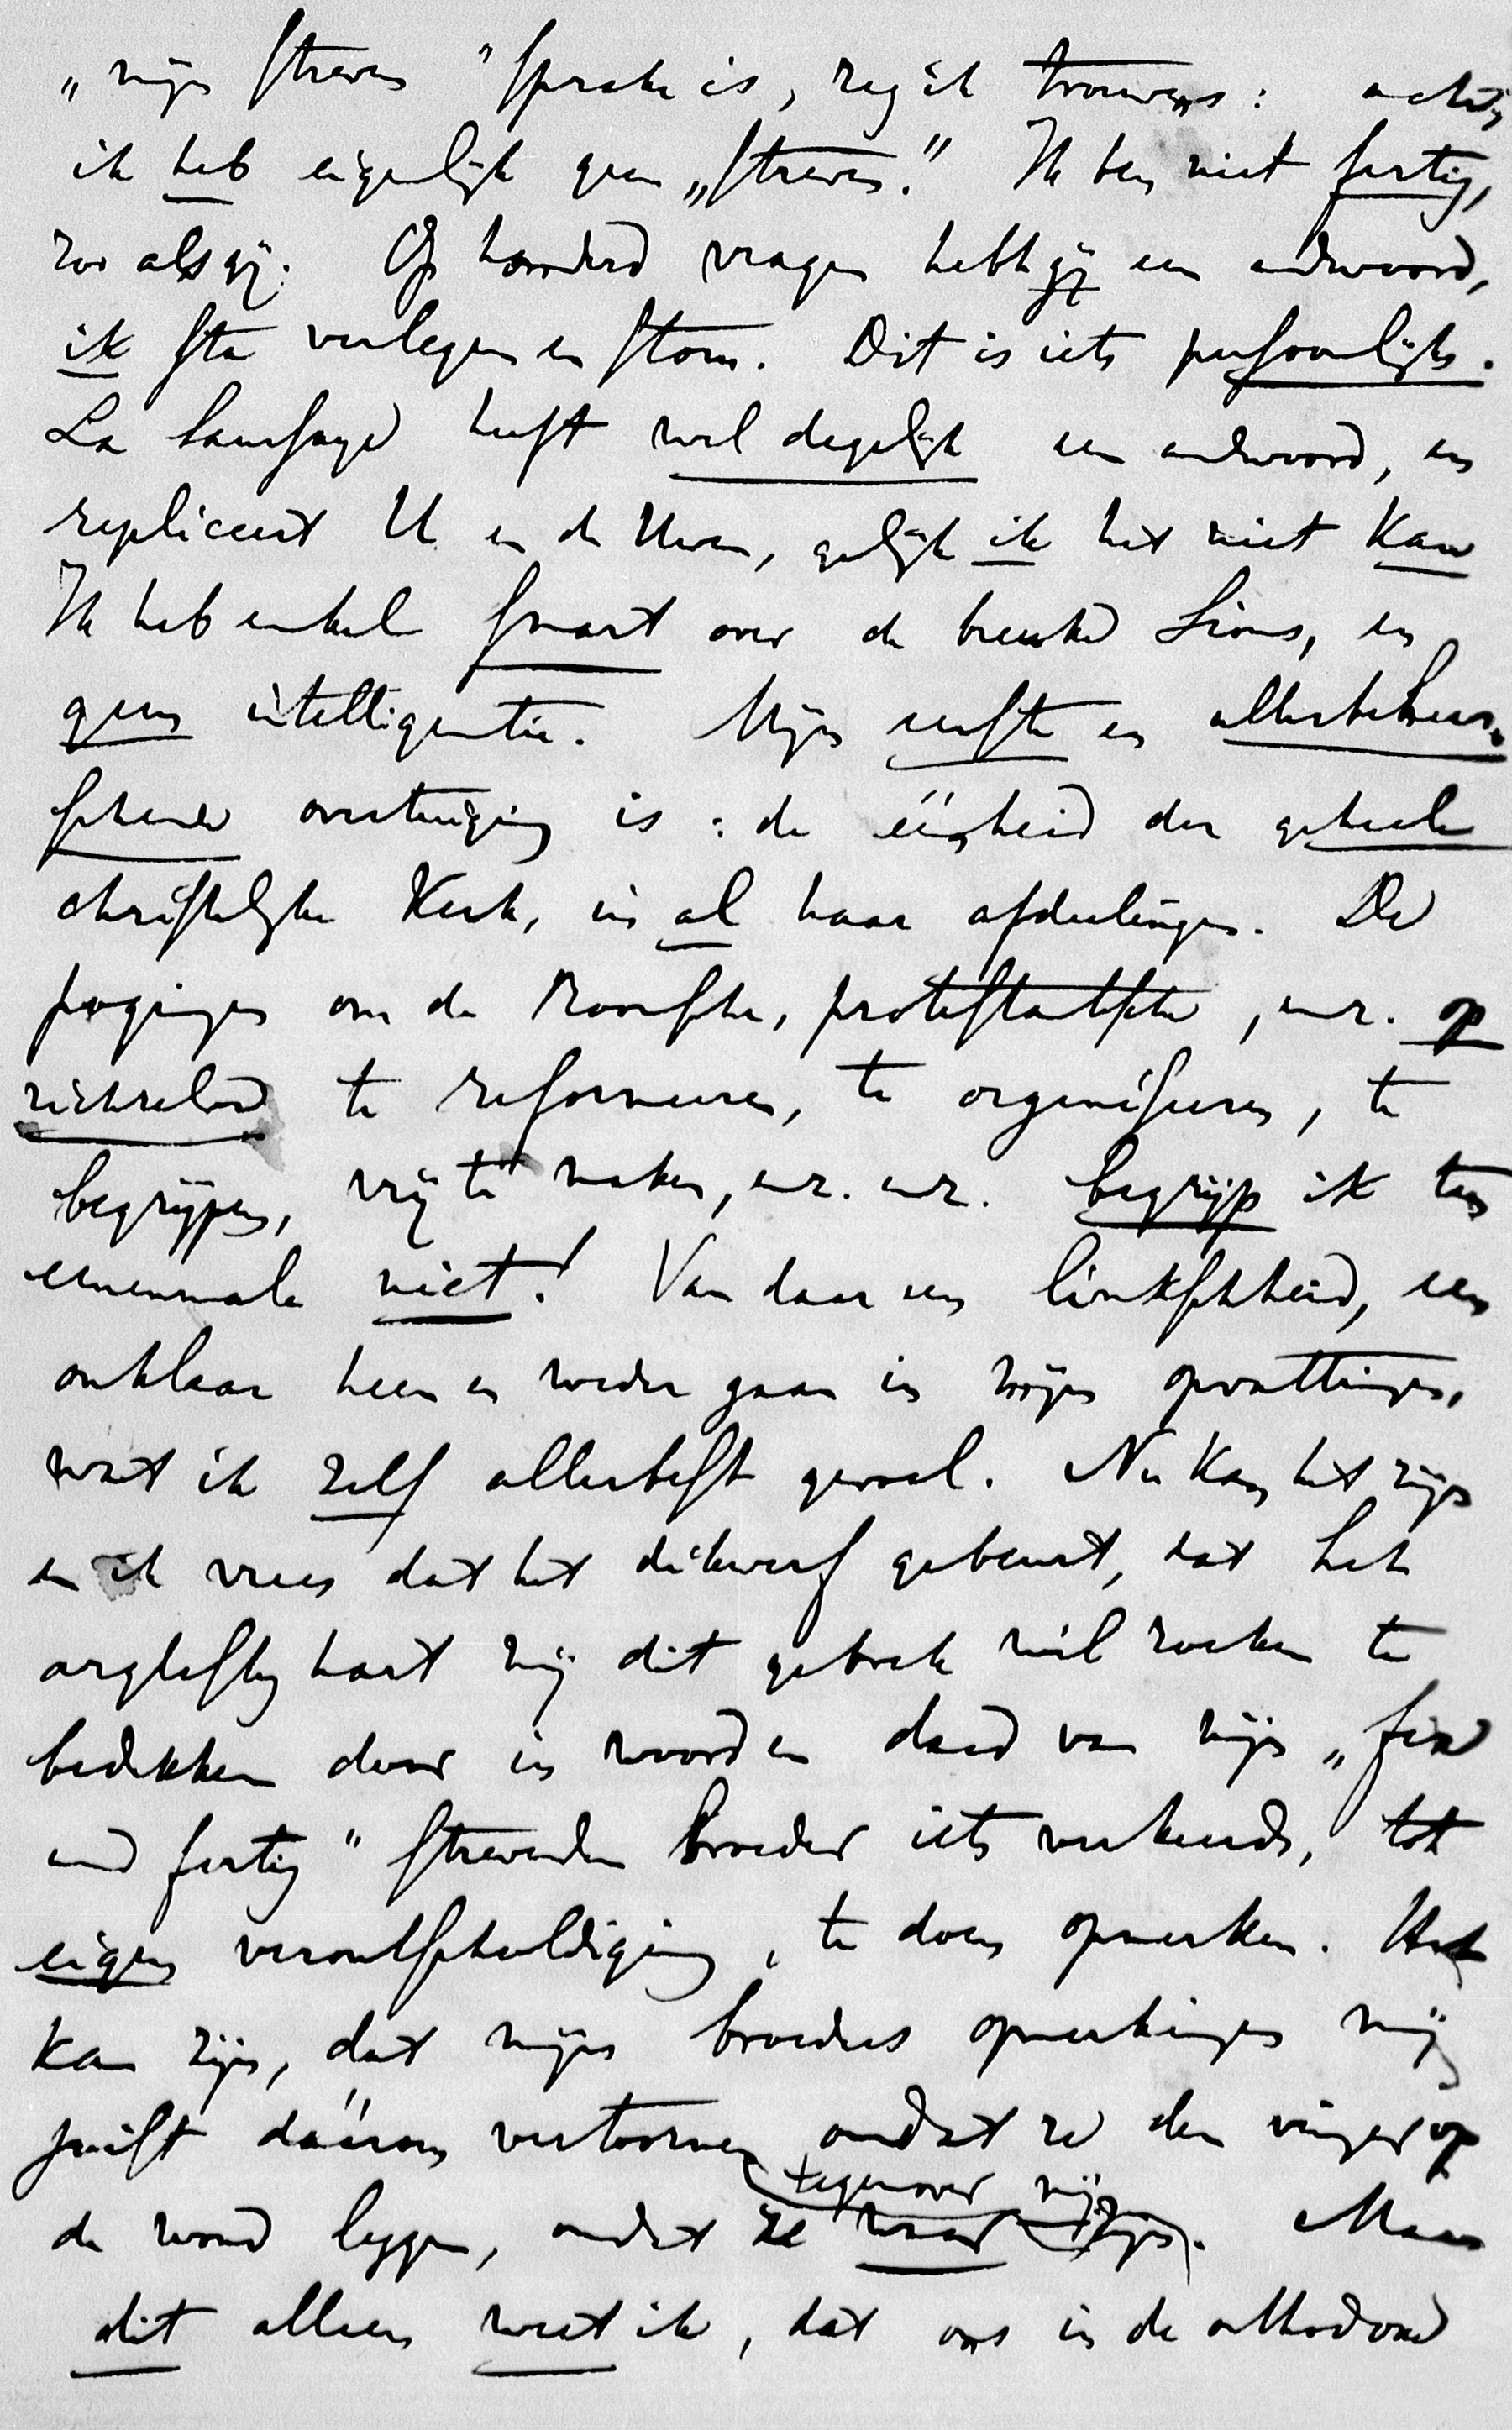 „mijn streven" sprake is, zeg ik trouwens: acht,
ik heb eigenlijk geen „streven." Ik ben niet fertig,
zoo als gij. Op honderd vragen hebt gij een antwoord,
ik sta verlegen en stom. Dit is iets persoonlijks.
La Saussaye heeft wel degelijk een antwoord, en
repliceert U en de Uwen, gelijk ik het niet kan
Ik heb enkel smart over de breuke Sions, en
geen intelligentie. Mijn eerste en allesbeheer-
schende overtuiging is: de éénheid der geheele
christelijke Kerk, in al haar afdeelingen. De
pogingen om de Roomsche, protestantsche, enz. op
zichzelve te reformeeren, te organiseeren, te
begrijpen, vrij te maken, enz. enz. begrijp ik ten
eenenmale niet! Van daar een linkschheid, een
onklaar heen en weder gaan in mijn opvattingen,
wat ik zelf allerbest gevoel. Nu kan het zijn
en ik vrees dat het dikwerf gebeurt, dat het
arglistig hart mij dit gebrek wil zoeken te
bedekken door in woord en daad van mijn „fix
und fertig" strevenden Broeder iets verkeerds, tot
eigen verontschuldiging, te doen opmerken. Het
kan zijn, dat mijn broeders opmerkingen mij
juist dáárom vertoornen omdat ze den vinger op
de wond leggen, omdat ze waar tegenover mij zijn. Maar
dit alleen weet ik, dat ons in de orthodoxe